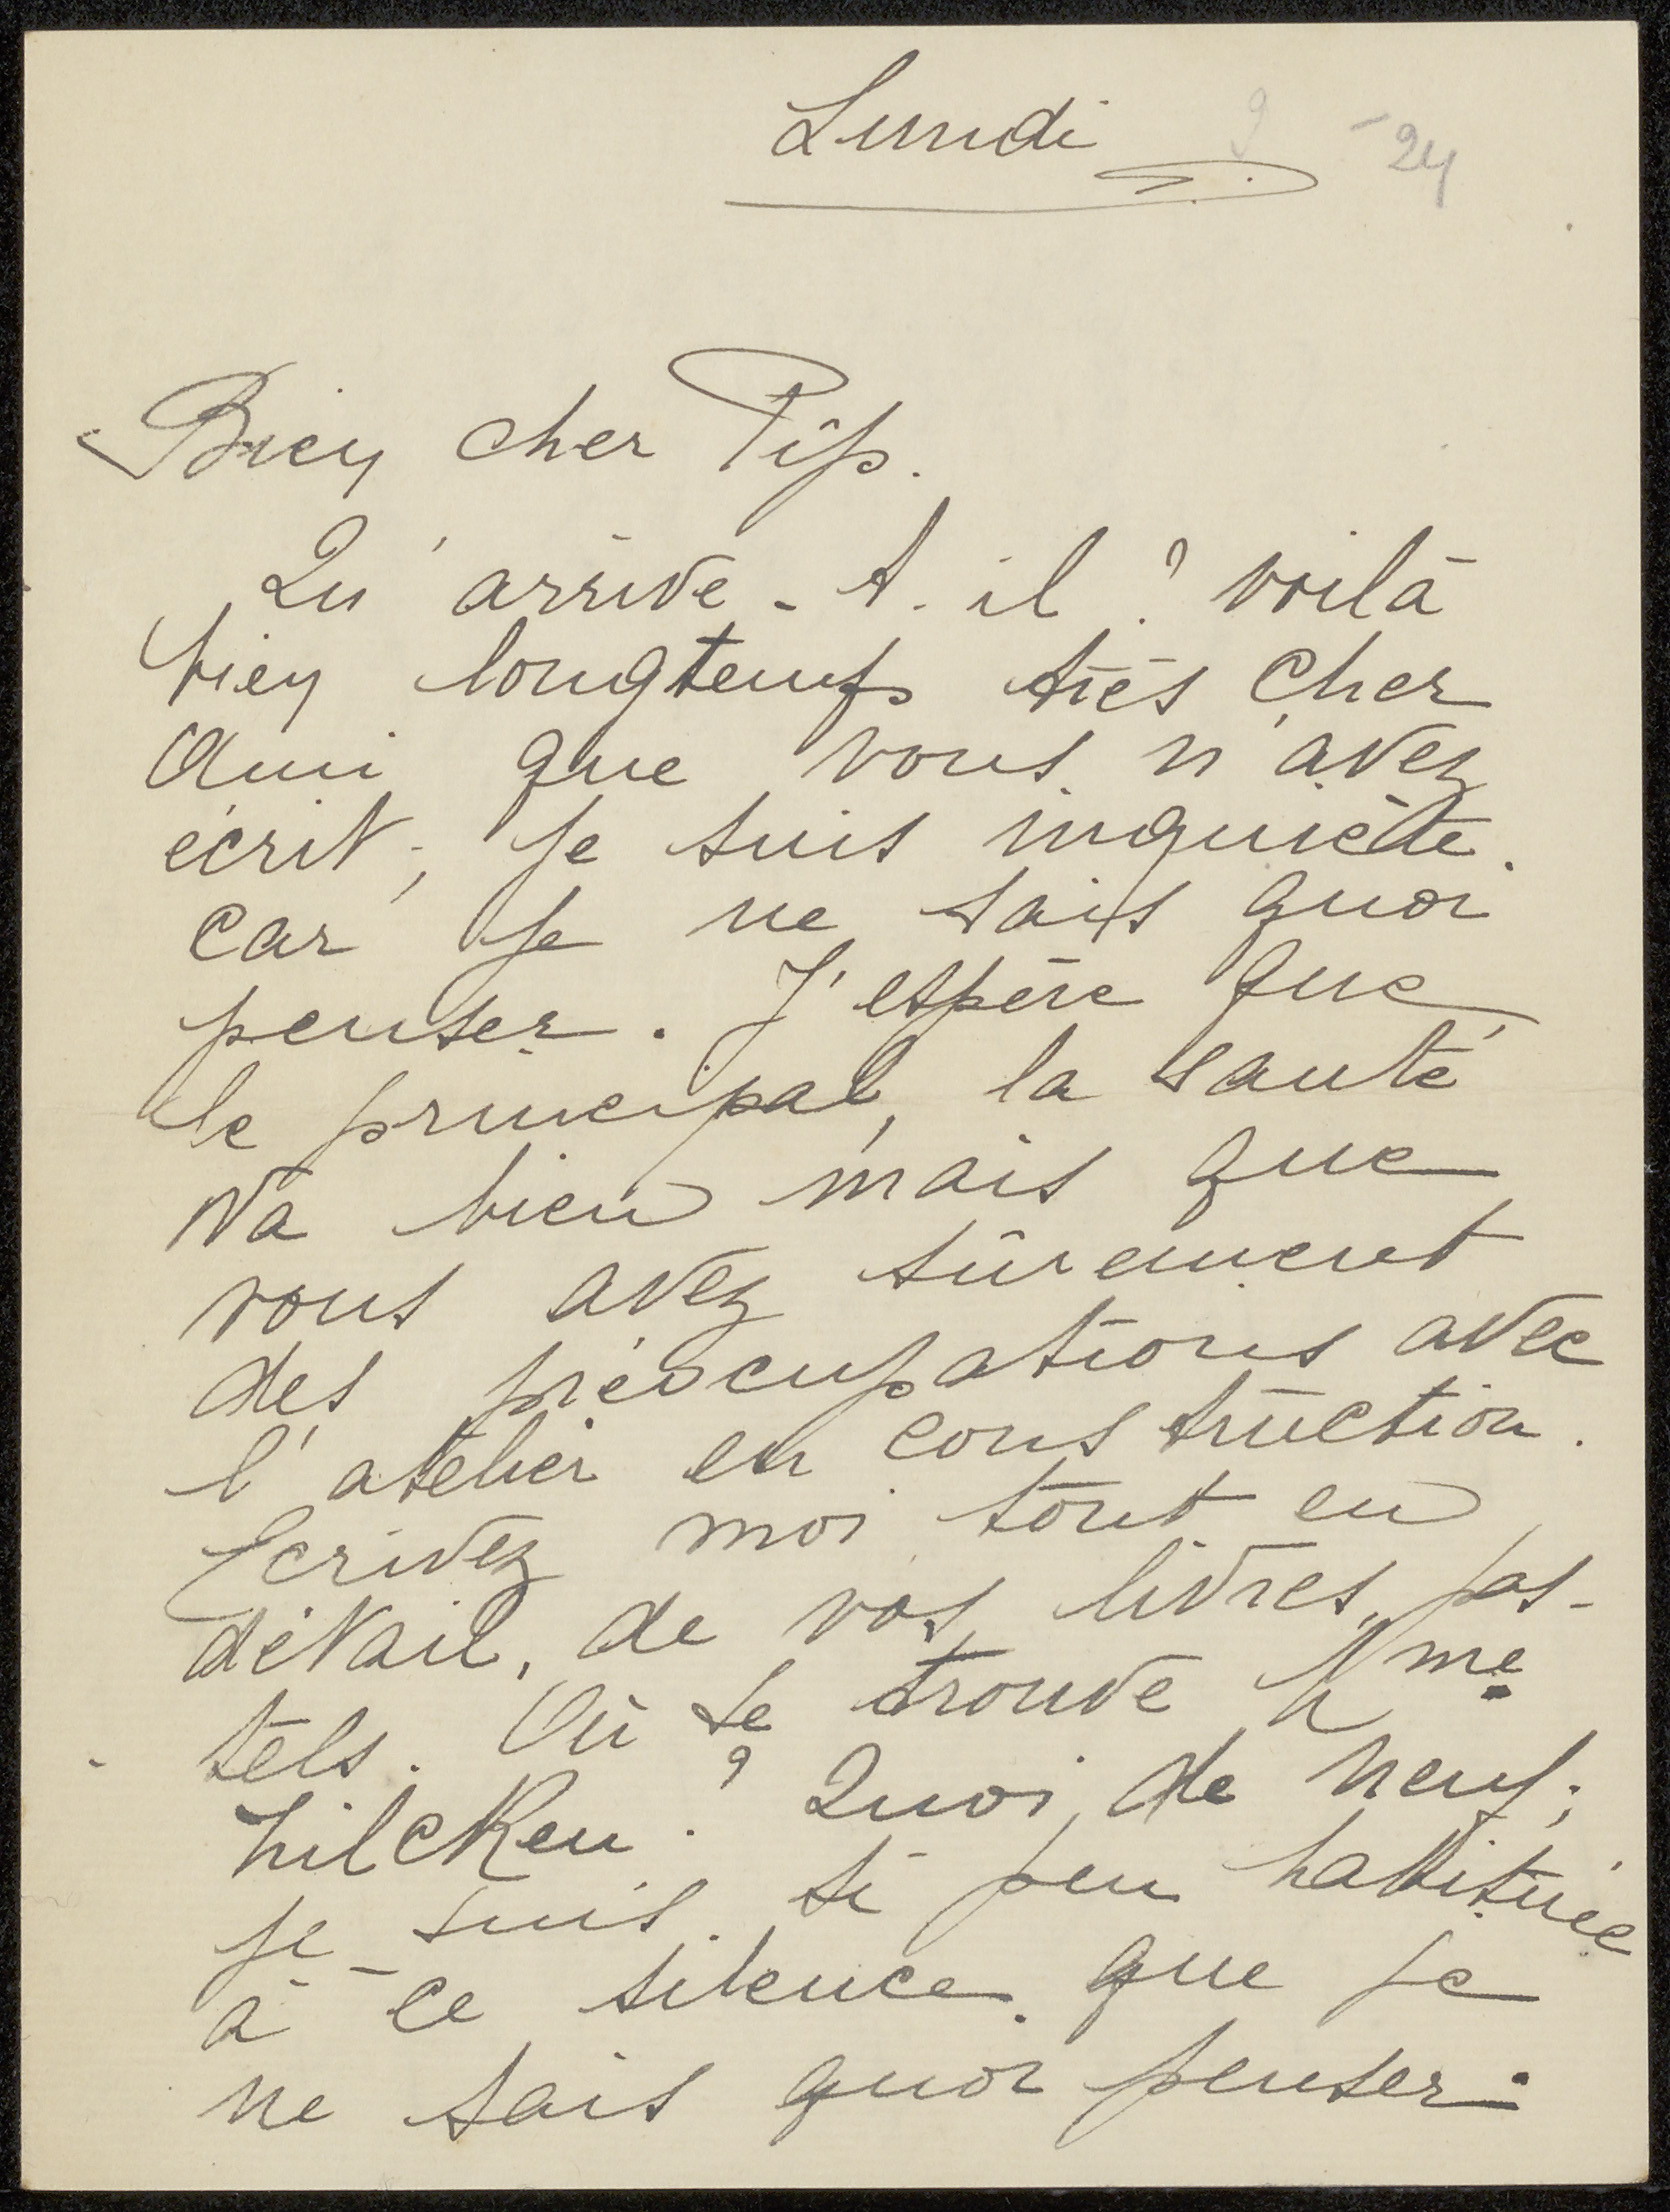 Lundi 9 - 24
Bien cher Pip.
Qu'arrive-t-il? voilà
bien longtemps très cher
Ami que vous n'avez
écrit; je suis inquiète.
car je ne sais quoi
penser. J'espère que
le principal, la santé
va bien mais que
vous avez sûrement
des préocupations avec
l'atelier en construction.
Ecrivez moi tout en
détail, de vos livres, pas-
tels. Où se trouve Mme
hilcken? Quoi de neuf;
je suis si peu habituée
à ce silence que je
ne sais quoi penser.